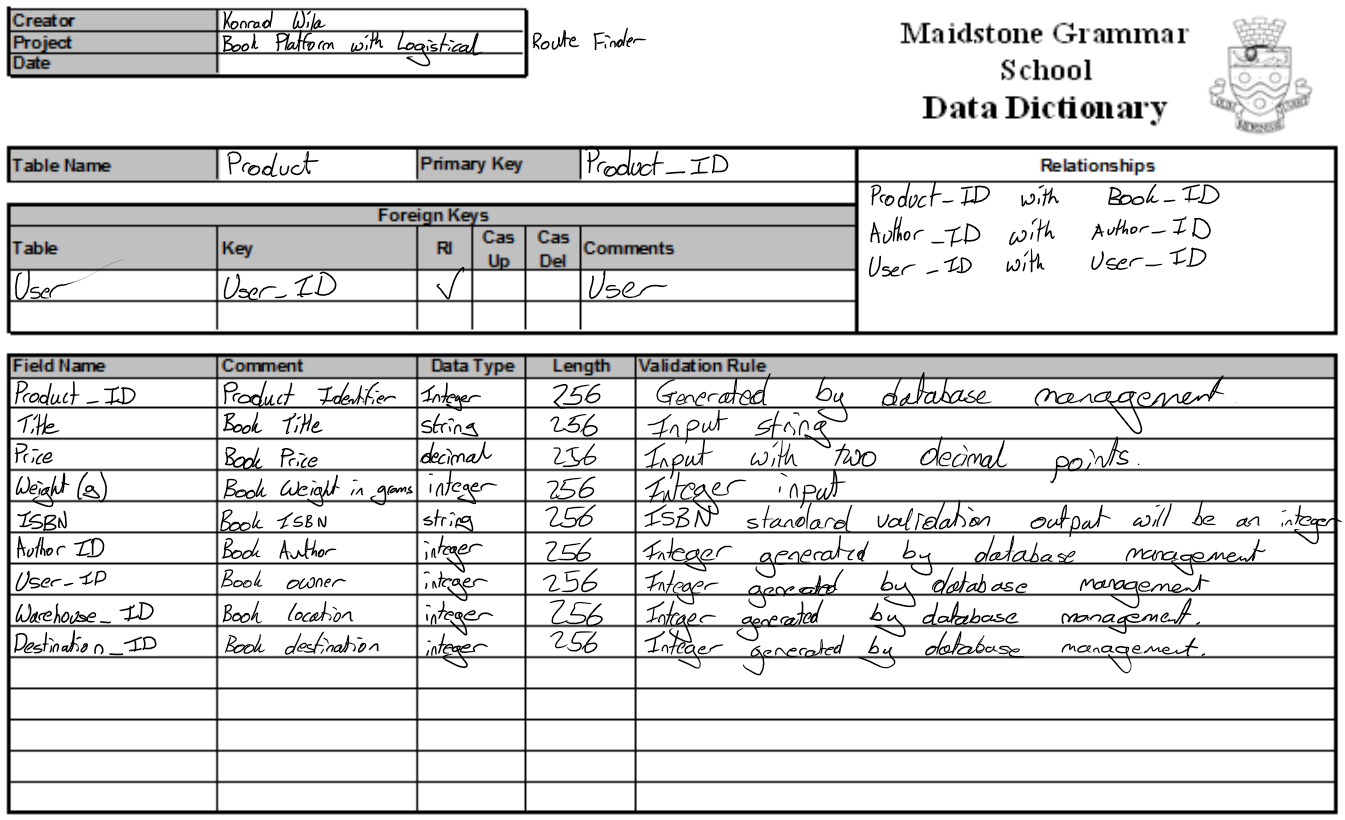 Creator Konrad Wilk
Project Book Platform with Logistical Route Finder
Date
Maidstone Grammar
School
Data Dictionary
Table Name Product Primary Key Product_ID
Relationships
Product_ID with Book_ID
Author_ID with Author_ID
User_ID with User_ID
Foreign Keys
Table Key RI Cas Up Cas Del Comments
User User_ID ✓ User
Field Name Comment Data Type Length Validation Rule
Product_ID Product Identifier Integer 256 Generated by database management
Title Book Title string 256 Input string
Price Book Price decimal 256 Input with two decimal points.
Weight (g) Book Weight in grams integer 256 Integer input
ISBN Book ISBN string 256 ISBN standard validation output will be an integer
Author ID Book Author integer 256 Integer generated by database management
User_ID Book owner integer 256 Integer generated by database management
Warehouse_ID Book location integer 256 Integer generated by database management.
Destination_ID Book destination integer 256 Integer generated by database management.